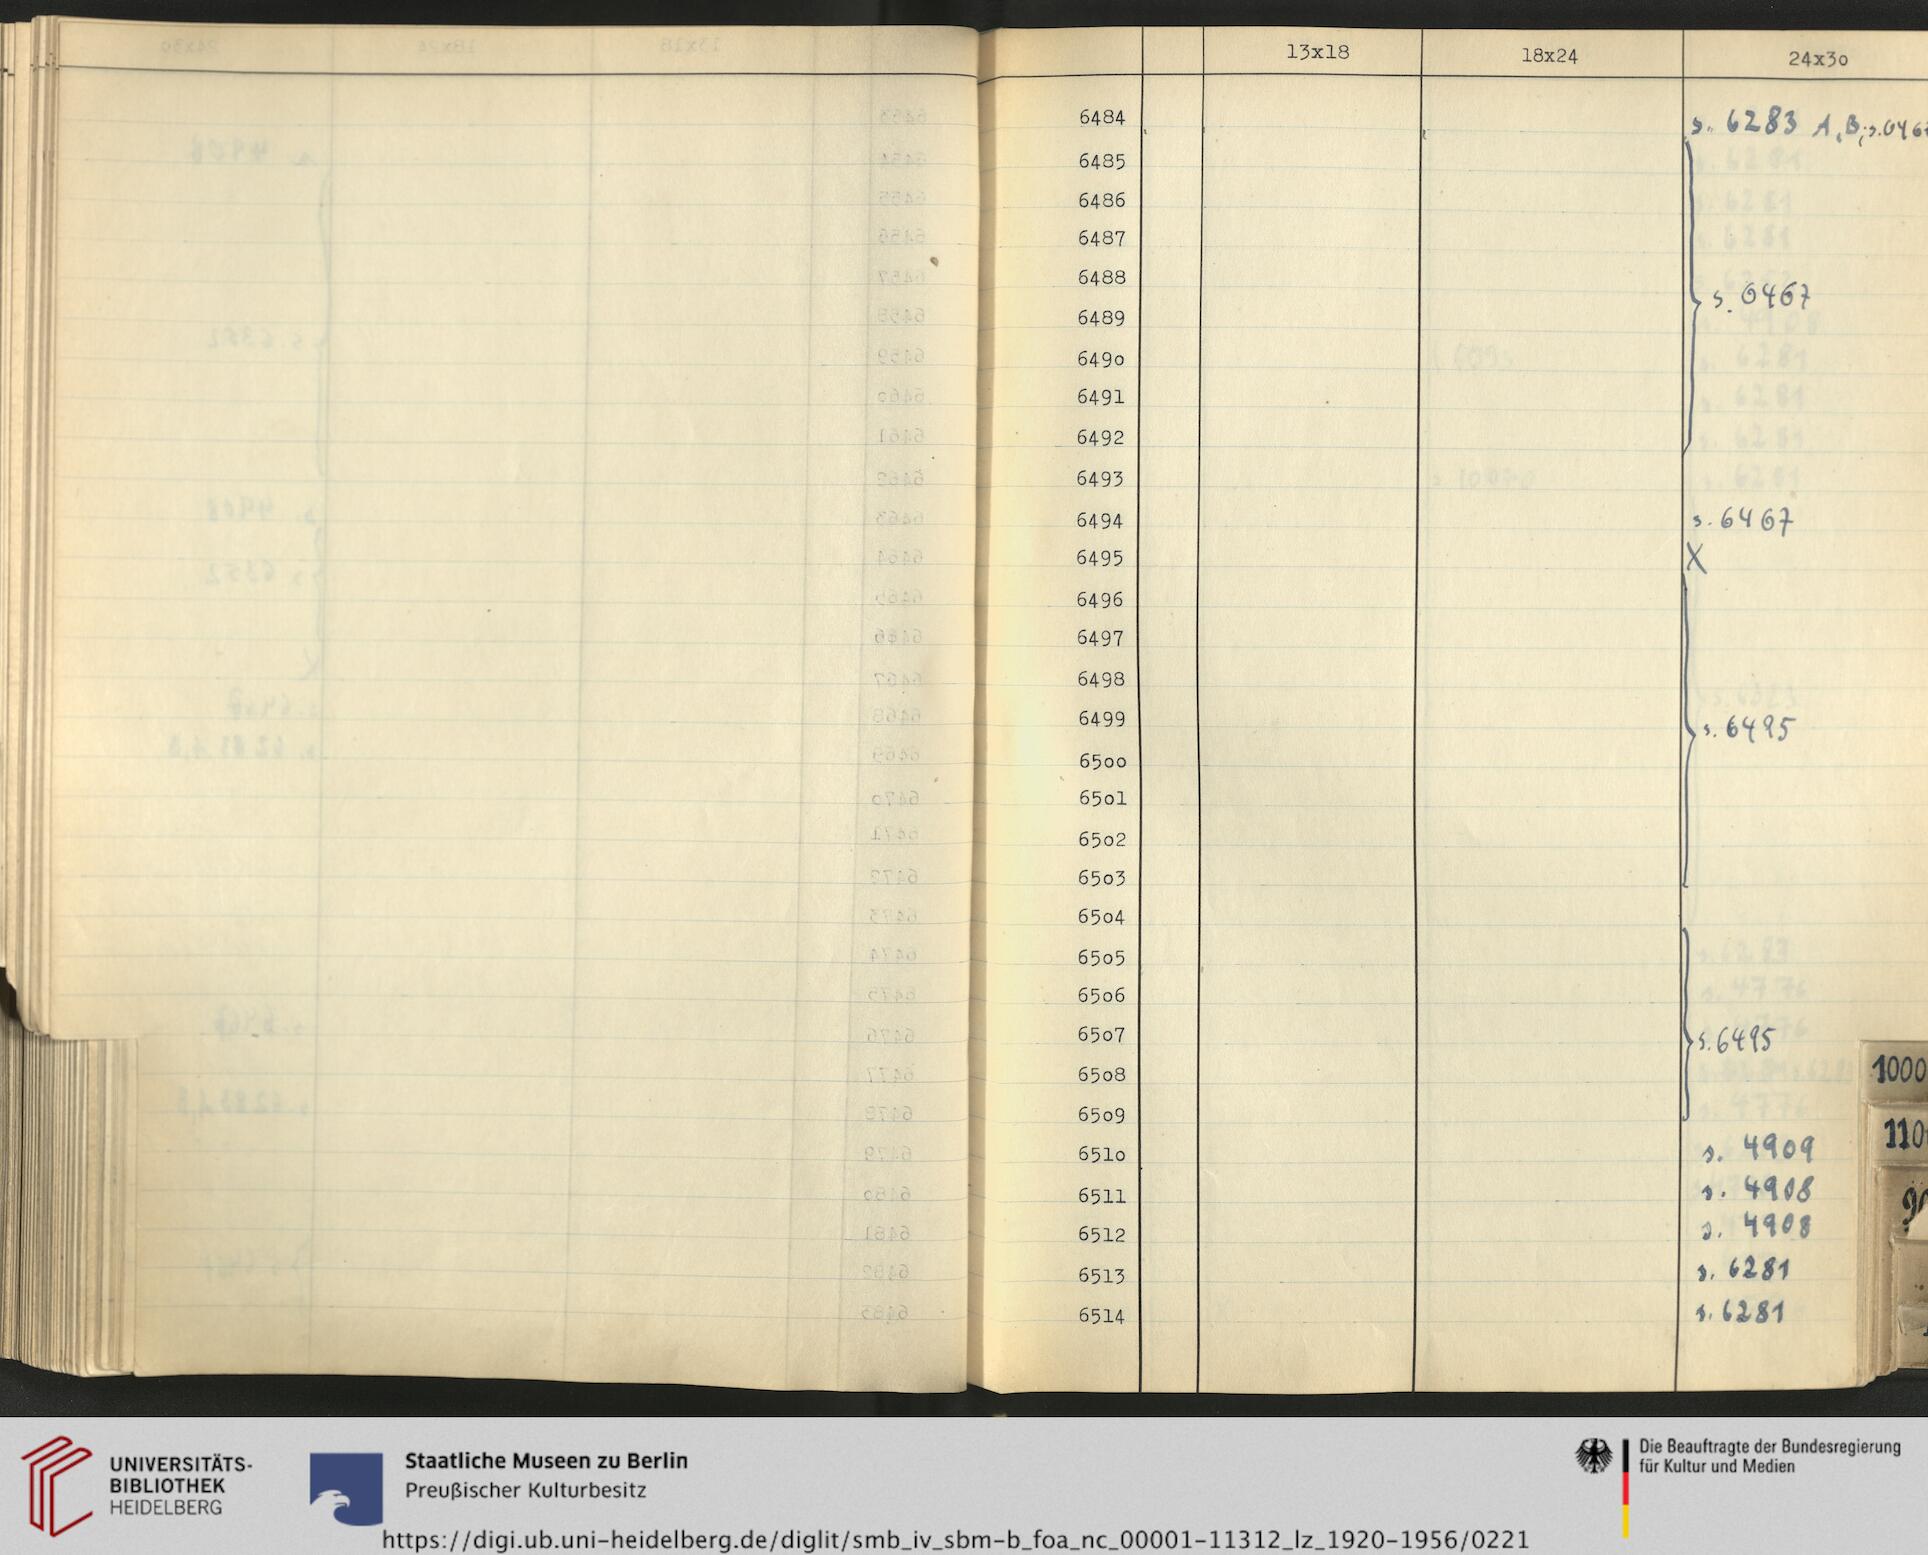 13x18 18x24 24x3o
6484 s. 6283 A, B; s. 6467
6485
6486
6487
6488
s. 6467
6489
649o
6491
6492
6493
6494 s. 6467
6495 X
6496
6497
6498
6499
s. 6495
65oo
65o1
65o2
65o3
65o4
65o5
65o6
65o7 s. 6495
65o8
65o9
651o s. 4909
6511 s. 4908
6512 s. 4908
6513 s. 6281
6514 s. 6281
1000
110
UNIVERSITÄTS-
BIBLIOTHEK
HEIDELBERG
Staatliche Museen zu Berlin
Preußischer Kulturbesitz
Die Beauftragte der Bundesregierung
für Kultur und Medien
https://digi.ub.uni-heidelberg.de/diglit/smb_iv_sbm-b_foa_nc_00001-11312_lz_1920-1956/0221